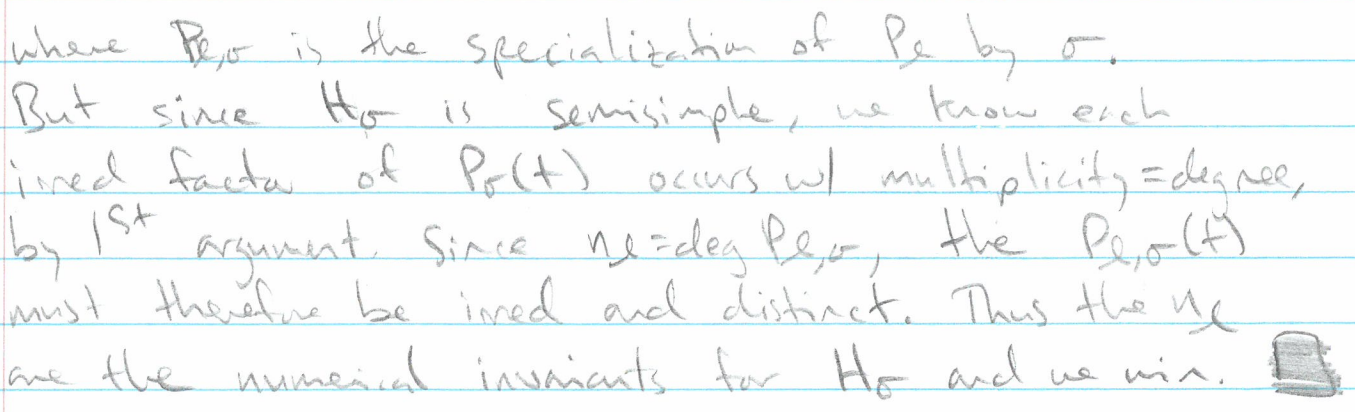 where Pℓ,σ is the specialization of Pℓ by σ.
But since Hσ is semisimple, we know each
irred factor of Pσ(t) occurs w/ multiplicity=degree,
by 1st argument. Since nℓ=deg Pℓ,σ, the Pℓ,σ(t)
must therefore be irred and distinct. Thus the nℓ
are the numerical invariants for Hσ and we win.